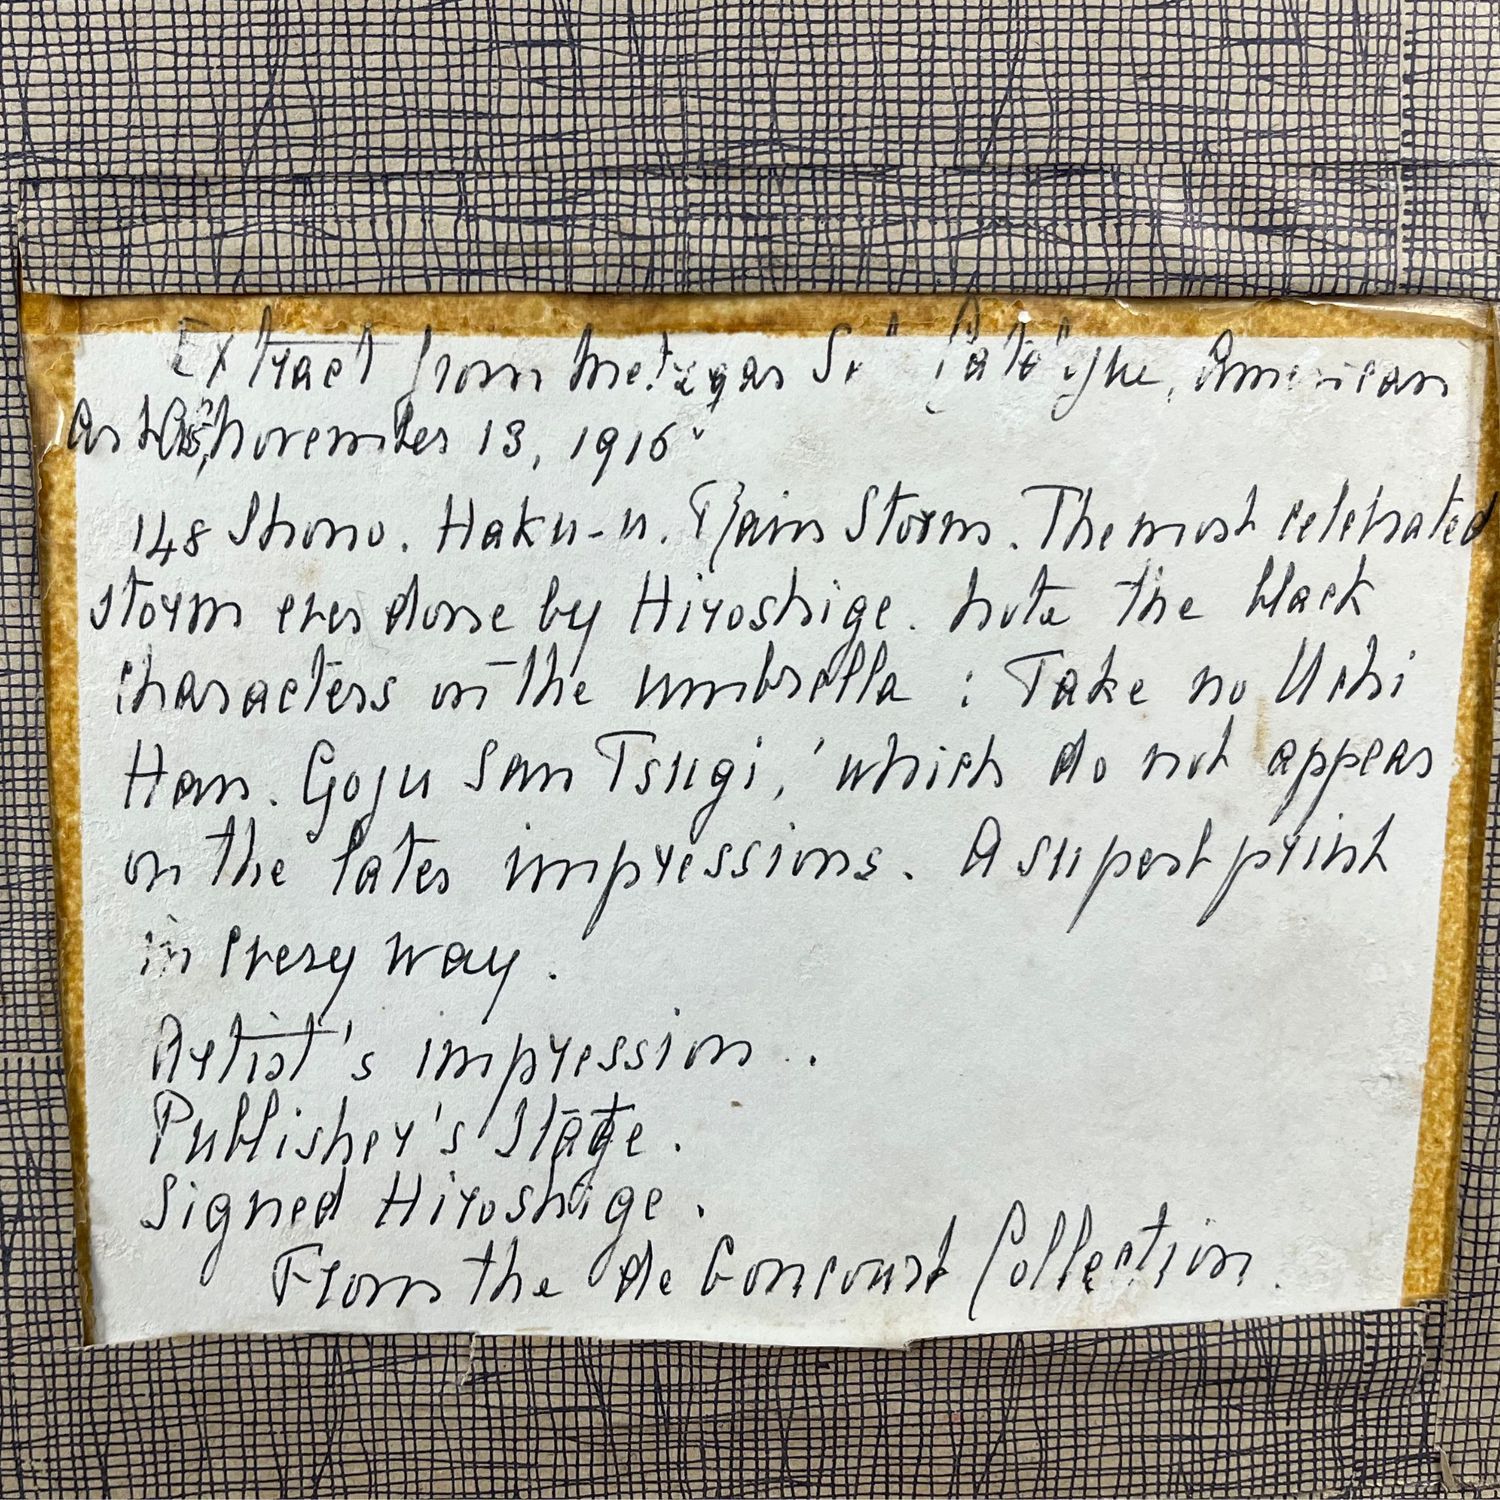 Extract from Metzgar Catalogue, American
Art Ass, November 13, 1916
148 Shono. Haku-u. Rain Storm. The most celebrated
storm ever done by Hiroshige. Note the black
characters on the umbrella : Take no Uchi
Han. Goju San Tsugi,' which do not appear
on the later impressions. A superb print
in every way.
Artist's impression.
Publisher's Stage.
Signed Hiroshige.
From the de Goncourt Collection.